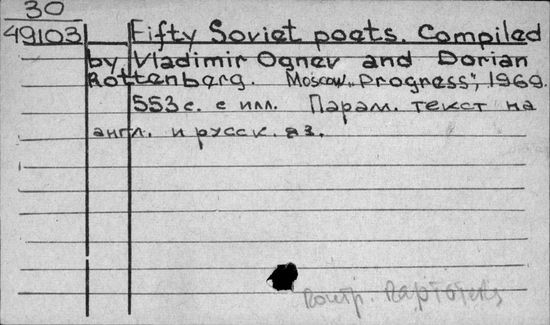 30
49103 Fifty Soviet poets. Compiled
by Vladimir Ognev and Dorian
Rottenberg. Moscow, „Progress“, 1969.
553 с. с илл. Парал. текст на
англ. и русск. яз.
Контр. картотека